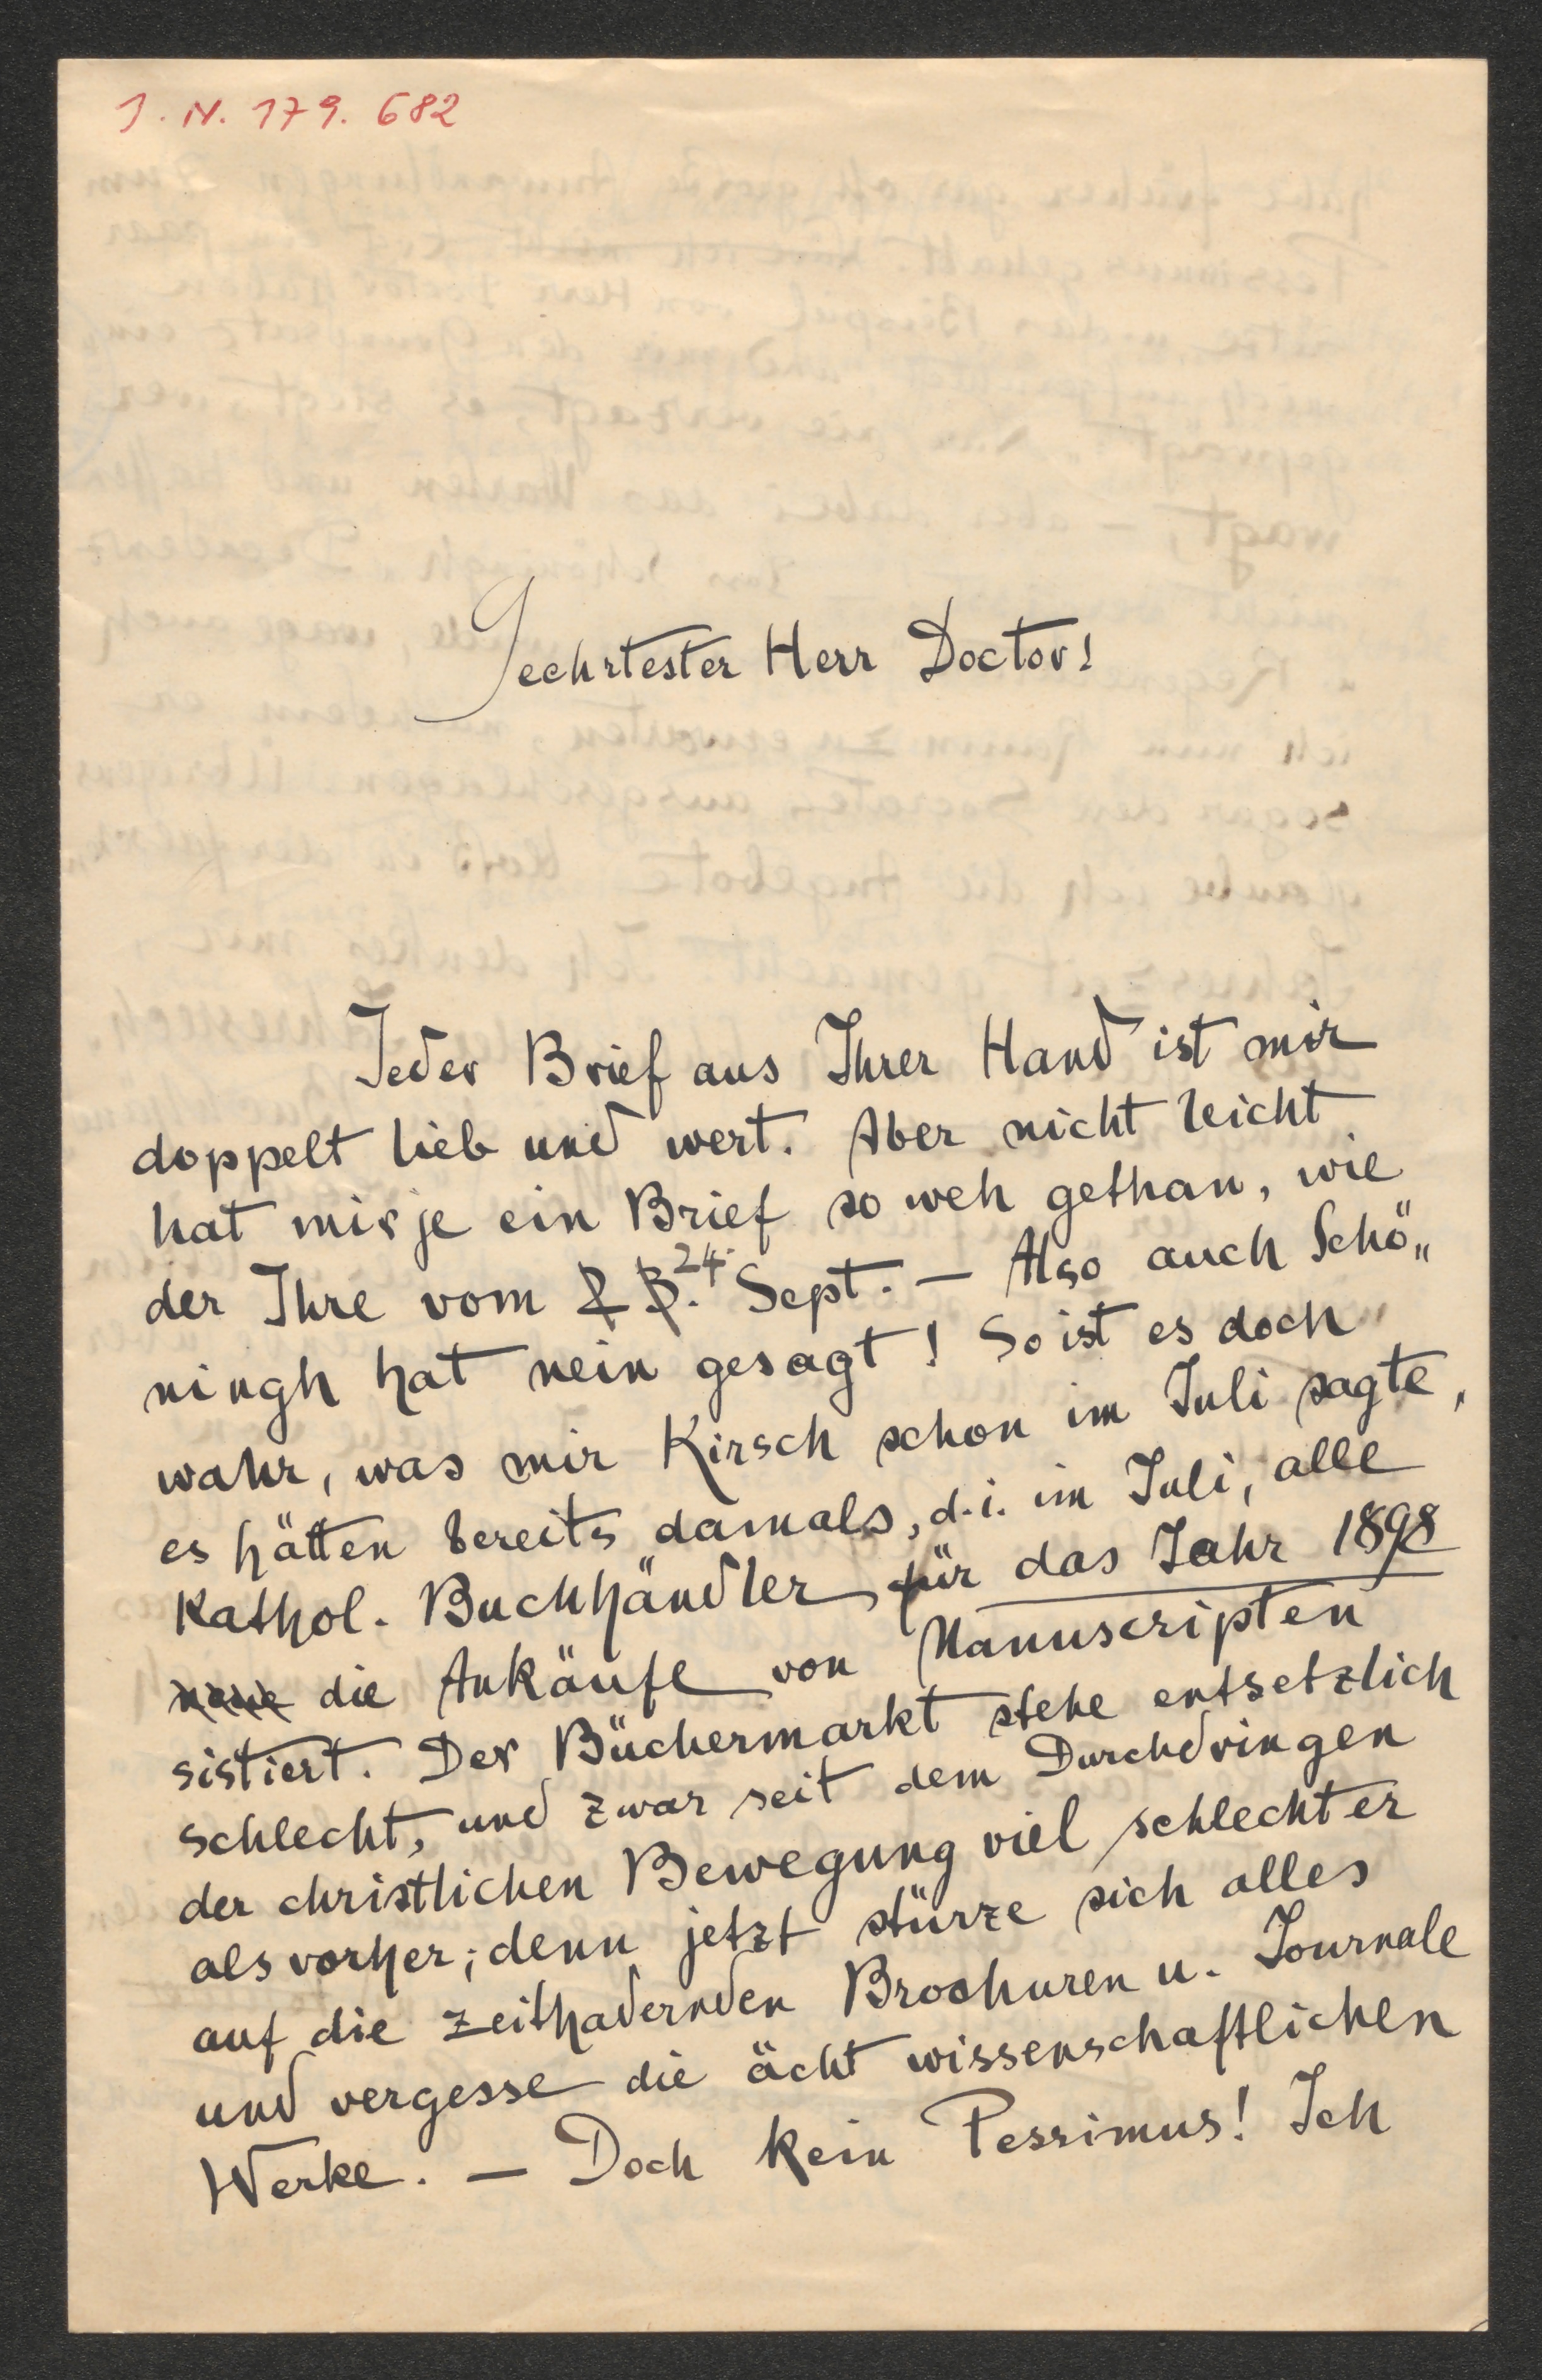 J. N. 179. 682
Geehrtester Herr Doctor!
Jeder Brief aus Ihrer Hand ist mir
doppelt lieb und wert. Aber nicht leicht
hat mir je ein Brief so weh gethan, wie
der Ihre vom 24. Sept. — Also auch Schö„
ningh hat nein gesagt! So ist es doch
wahr, was mir Kirsch schon im Juli sagte,
es hätten bereits damals, d. i. im Juli, alle
Kathol. Buchhändler für das Jahr 1898
neue die Ankäufe von Manuscripten
sistiert. Der Büchermarkt stehe entsetzlich
schlecht, und zwar seit dem Durchdringen
der christlichen Bewegung viel schlechter
als vorher; denn jetzt stürze sich alles
auf die zeithadernden Brochuren u. Journale
und vergesse die ächt wissenschaftlichen
Werke. — Doch kein Pessimus! Ich